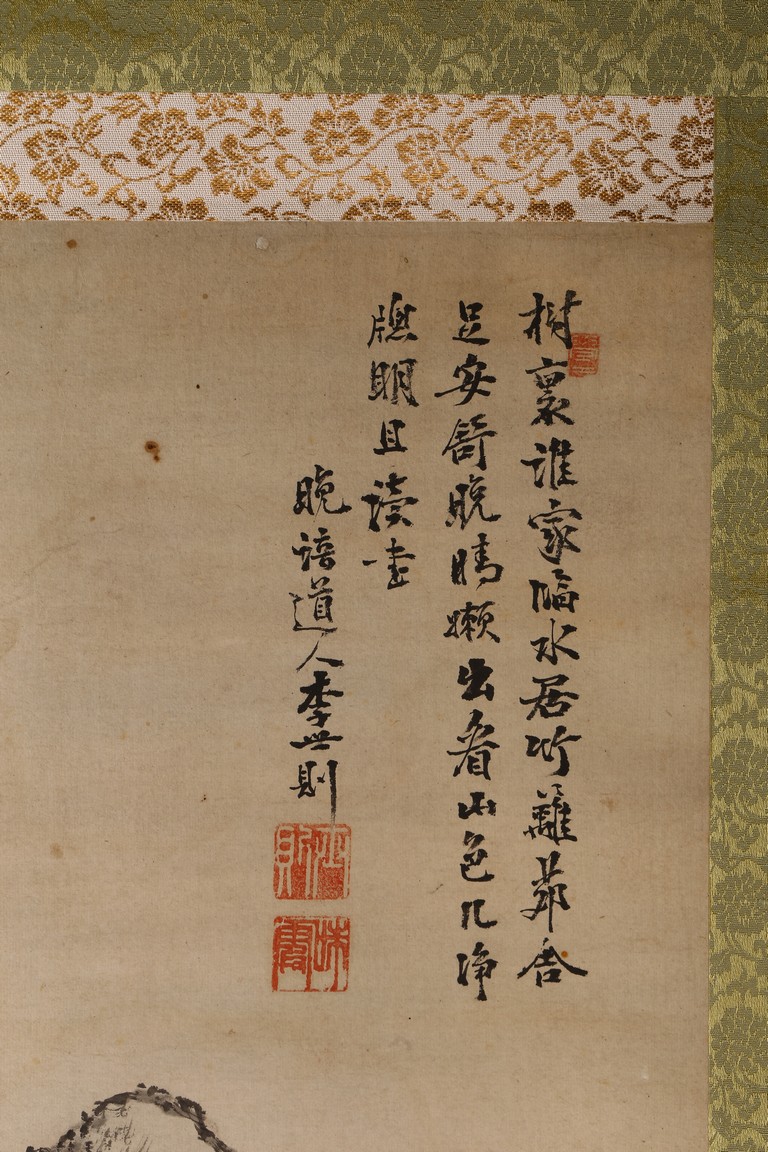 樹裏誰家臨水居竹籬茆舍
足安舒晩晴嬾出看山色几淨
牕明且讀書
晩道人李世則